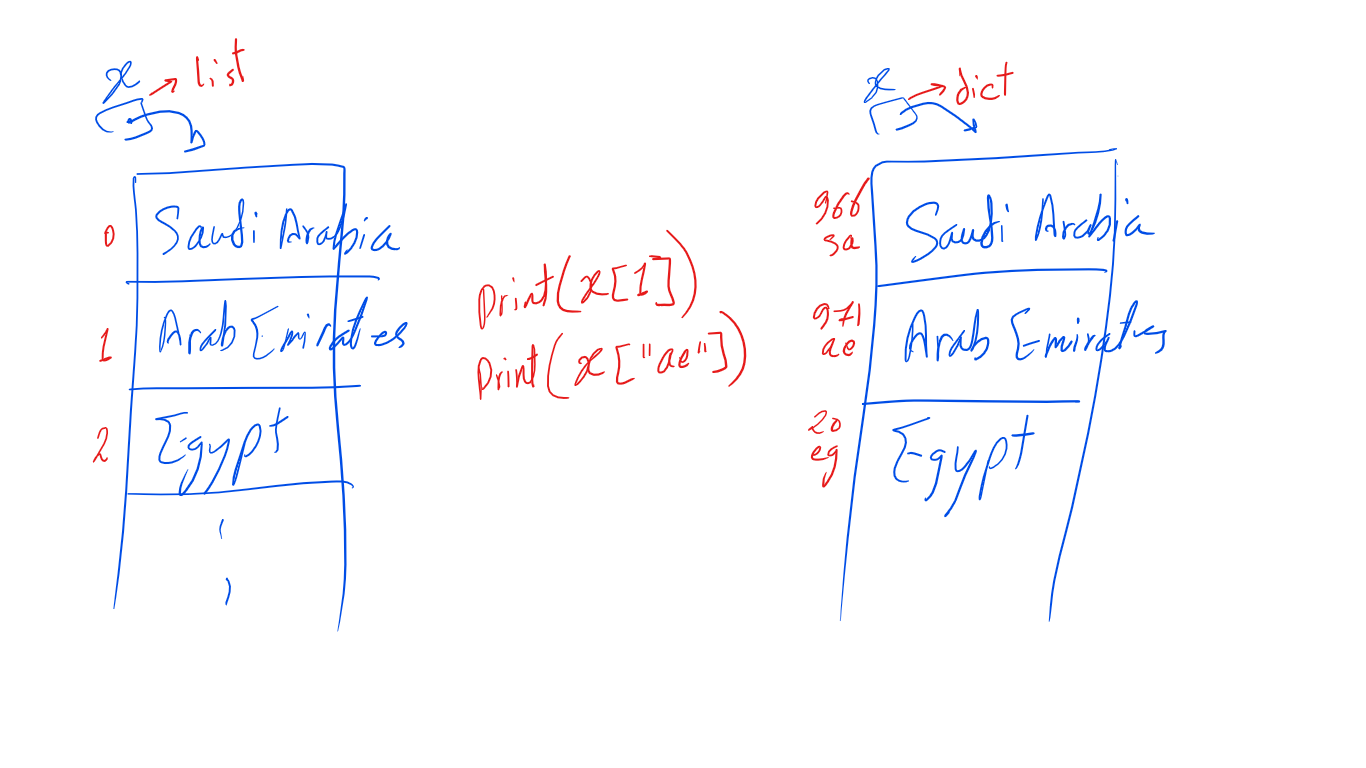 x → list
0 Saudi Arabia
1 Arab Emirates
2 Egypt
Print(x[1])
Print(x["ae"])
x → dict
966
sa Saudi Arabia
971
ae Arab Emirates
20
eg Egypt